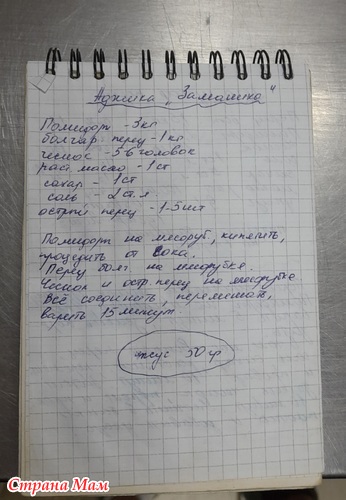 Аджика „Заманиха"
Помидоры -3кг
болгар. перец -1кг
чеснок -5-6 головок
рай. масло -1ст
сахар - 1ст
соль - 2ст.л
острый перец -1-5шт
Помидоры на мясоруб, кипятить,
процедить от сока.
Перец болг на мясорубке.
Чеснок и остр. перец на мясорубке
Всё соединить, перемешать,
варить 15 минут.
уксус 50 гр
Страна Мам